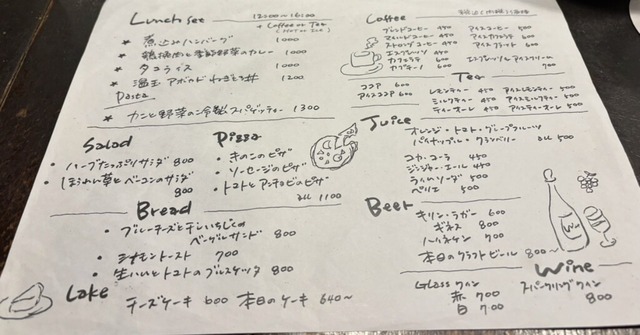 Lunch set 12:00~16:00
+ Coffee or Tea
(Hot or Ice)
* 煮込みハンバーグ 1000
* 鶏挽肉と季節野菜のカレー 1000
* タコライス 1000
* 温玉アボカドねぎとろ丼 1200
Pasta
* カニと野菜の冷製スパゲッティー 1300
Salad
・ハーブたっぷりサラダ 800
・ほうれん草とベーコンのサラダ 800
Pizza
・きのこのピザ
・ソーセージのピザ
・トマトとアンチョビのピザ
all 1100
Bread
・ブルーチーズと干しいちじくの
ベーグルサンド 800
・シナモントースト 700
・生ハムとトマトのブルスケッタ 800
Cake
チーズケーキ 600 本日のケーキ 640~
Coffee
ブレンドコーヒー 450
マイルドコーヒー 450
ストロングコーヒー 450
エスプレッソ 450
カフェラテ 600
カプチーノ 600
アイスコーヒー 500
アイスカフェラテ 600
アイスフラット 600
エスプレッソ&アイスクリーム 700
ココア 600
アイスココア 600
Tea
レモンティー 450 アイスレモンティー 500
ミルクティー 450 アイスミルクティー 500
ティーオーレ 450 アイスティーオーレ 500
Juice
オレンジ・トマト・グレープフルーツ
パイナップル・クランベリー all 500
コカ・コーラ 450
ジンジャーエール 450
ライムソーダ 500
ペリエ 500
Beer
キリン・ラガー 600
ギネス 800
ハイネケン 700
本日のクラフトビール 800~
Wine
Glass ワイン
赤 700
白 700
スパークリングワイン 800